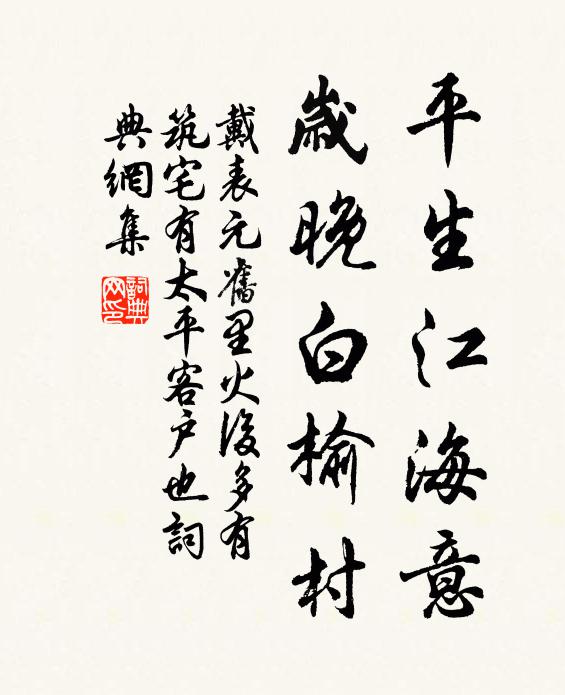 平生江海意
歲晚白榆村
戴表元舊里火後多有
筑宅有太平客戶也詞
典網集
詞典網印